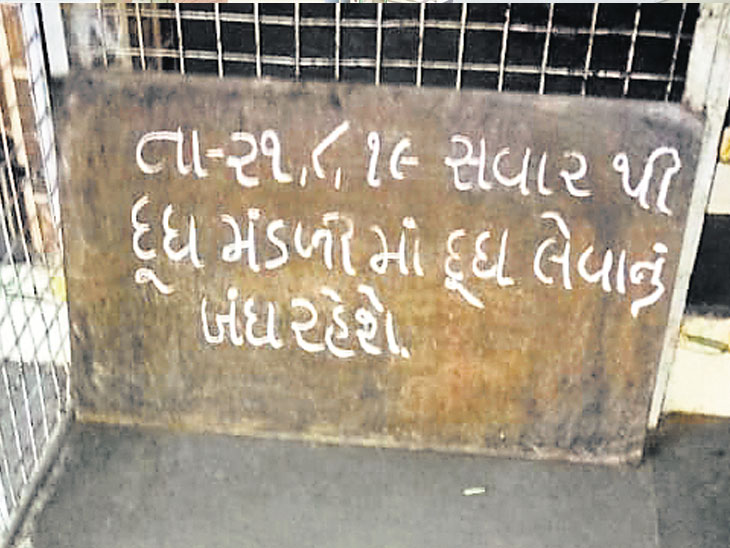 તા-૨૧,૮,૧૯ સવાર થી
દૂધ મંડળી માં દૂધ લેવાનું
બંધ રહેશે.